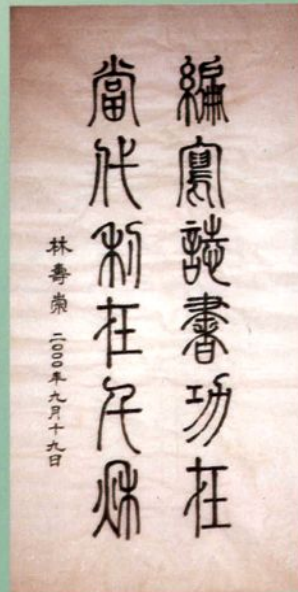 編寫誌書功在
當代利在千秋
林壽崇 二〇〇〇年九月十九日